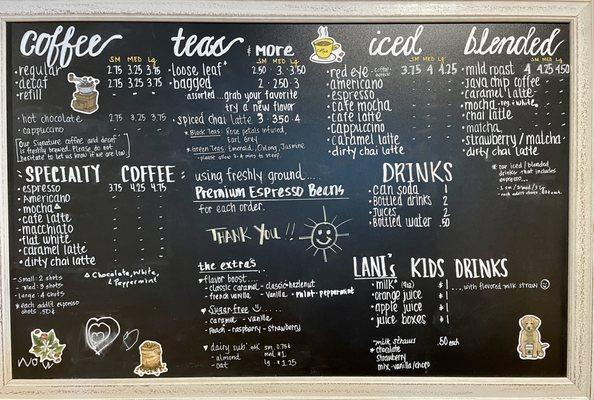 coffee
SM MED LG
· regular 2.75 3.25 3.75
· decaf 2.75 3.25 3.75
· refill
· hot chocolate 2.75 3.25 3.75
· cappuccino
Our signature coffee and decaf
is freshly brewed. Please do not
hesitate to let us know if we are low.
SPECIALTY COFFEE
· espresso 3.75 4.25 4.75
· Americano
· mocha
· cafe latte
· macchiato
· flat white
· caramel latte
· dirty chai latte
- small: 2 shots
- med: 3 shots
- large: 4 shots
* each addit'l espresso
shots .50¢
Chocolate, White,
Peppermint
teas & MORE
SM MED LG
· loose leaf* 2.50 · 3 · 3.50
· bagged 2 · 2.50 · 3
assorted...grab your favorite
try a new flavor
· spiced chai latte 3 · 3.50 · 4
* Black Teas: Rose petals infused,
Earl Grey
* Green Teas: Emerald, Oolong, Jasmine
- please allow 3-4 mins to steep
using freshly ground....
Premium Espresso Beans
for each order.
THANK YOU!!
the extra's
♥ flavor boost...
- classic caramel - classic hazelnut
- french vanilla - vanilla - mint - peppermint
♥ Sugar-free
- caramel - vanilla
- peach - raspberry - strawberry
♥ dairy sub'
- almond
- oat
sm 0.75¢
med. $1
lg - $1.25
iced
SM MED LG
· red eye 3.75 4 4.25
· americano
· espresso
· cafe mocha
· cafe latte
· cappuccino
· caramel latte
· dirty chai latte
DRINKS
· can soda 1
· Bottled drinks 2
· Juices 2
· Bottled water .50
LANI's KIDS DRINKS
· milk* (8oz) $1 ...with flavored milk straw
· orange juice $1
· apple juice $1
· juice boxes $1
- milk straws .50 each
* chocolate
strawberry
mix - vanilla/choco
blended
SM MED LG
· mild roast 4 4.25 4.50
· java chip coffee
· caramel latte
· mocha reg + white
· chai latte
· matcha
· strawberry / matcha
· dirty chai latte
* our iced / blended
drinks that includes
espresso...